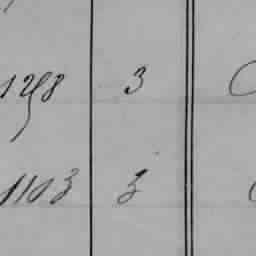 1258 3
1103 3